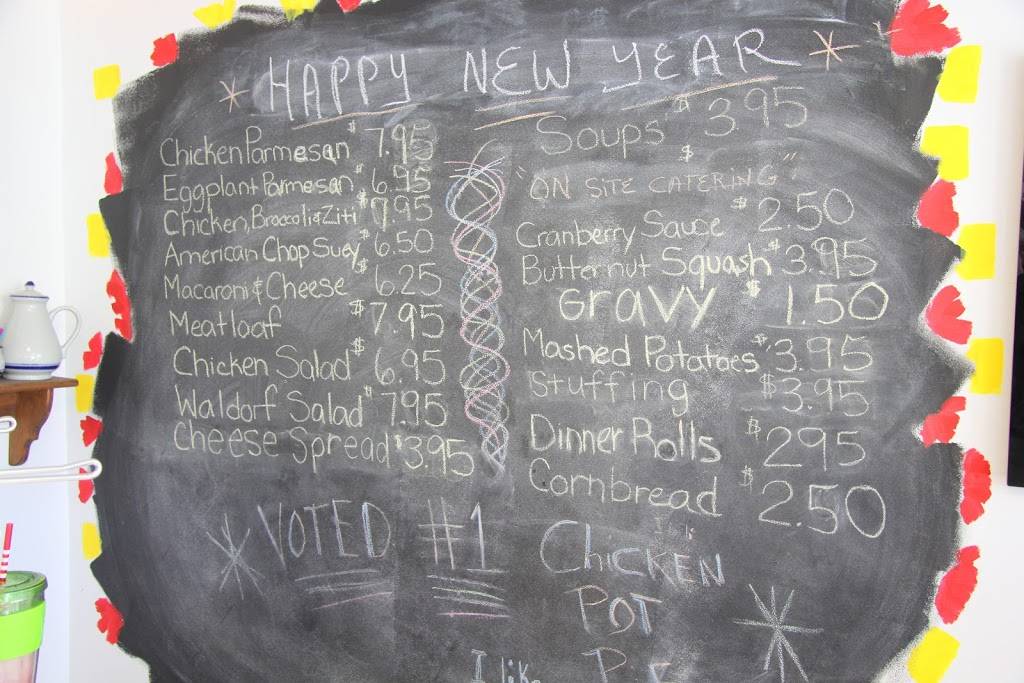 * HAPPY NEW YEAR *
Chicken Parmesan $7.95
Eggplant Parmesan $6.95
Chicken, Broccoli & Ziti $7.95
American Chop Suey $6.50
Macaroni & Cheese $6.25
Meatloaf $7.95
Chicken Salad $6.95
Waldorf Salad $7.95
Cheese Spread $3.95
Soups $3.95
"ON SITE CATERING"
Cranberry Sauce $2.50
Butternut Squash $3.95
GRAVY $1.50
Mashed Potatoes $3.95
Stuffing $3.95
Dinner Rolls $2.95
Cornbread $2.50
* VOTED #1
CHICKEN
POT
PIE *
I like